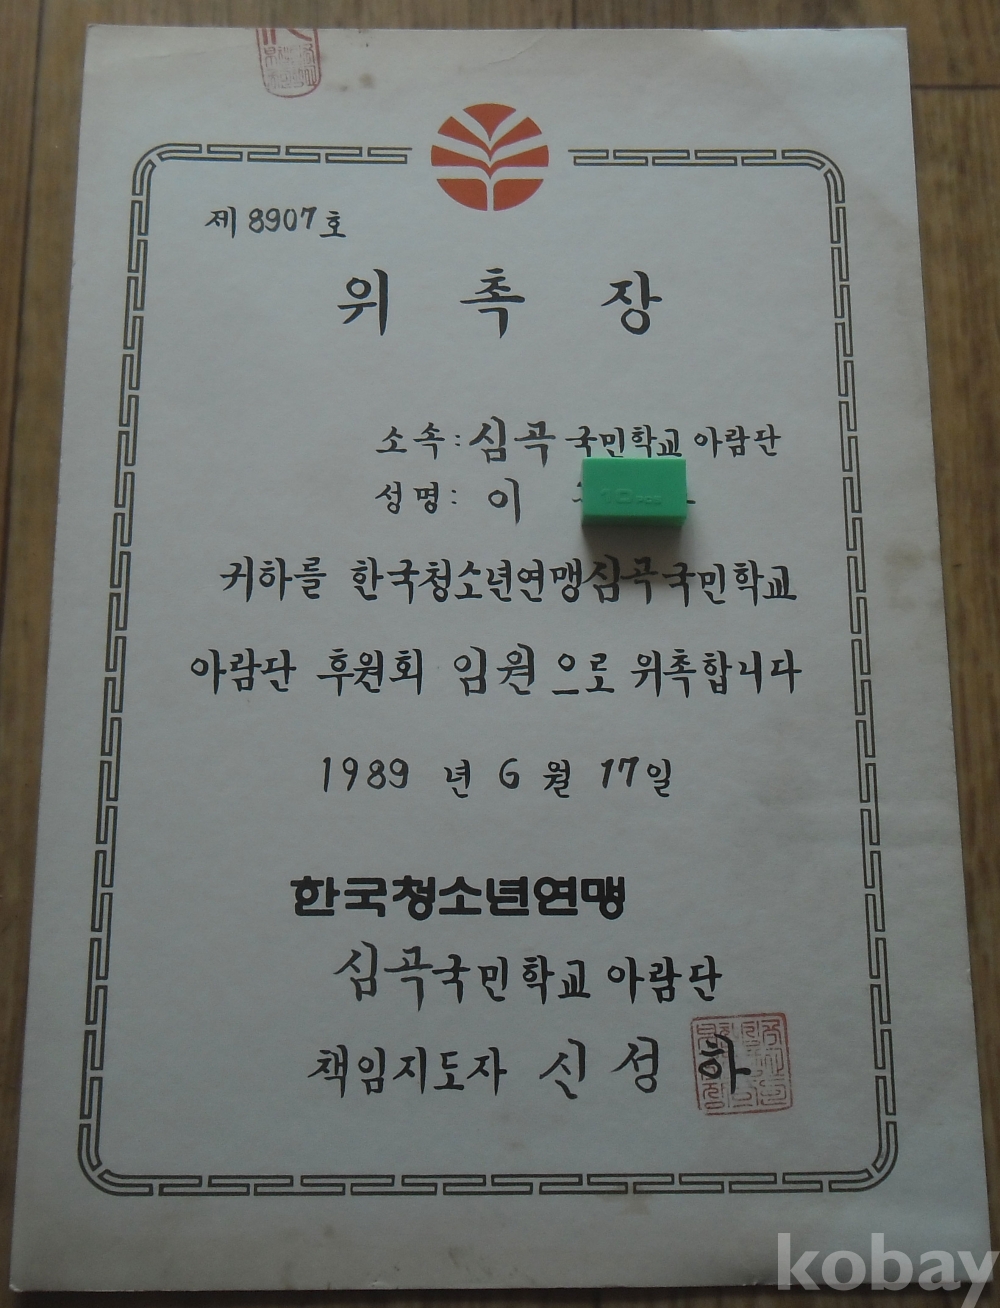 제 8907 호
위 촉 장
소속: 심곡 국민학교 아람단
성명: 이
귀하를 한국청소년연맹심곡국민학교
아람단 후원회 임원 으로 위촉합니다
1989 년 6 월 17일
한국청소년연맹
심곡국민학교 아람단
책임지도자 신 성 하
kobay